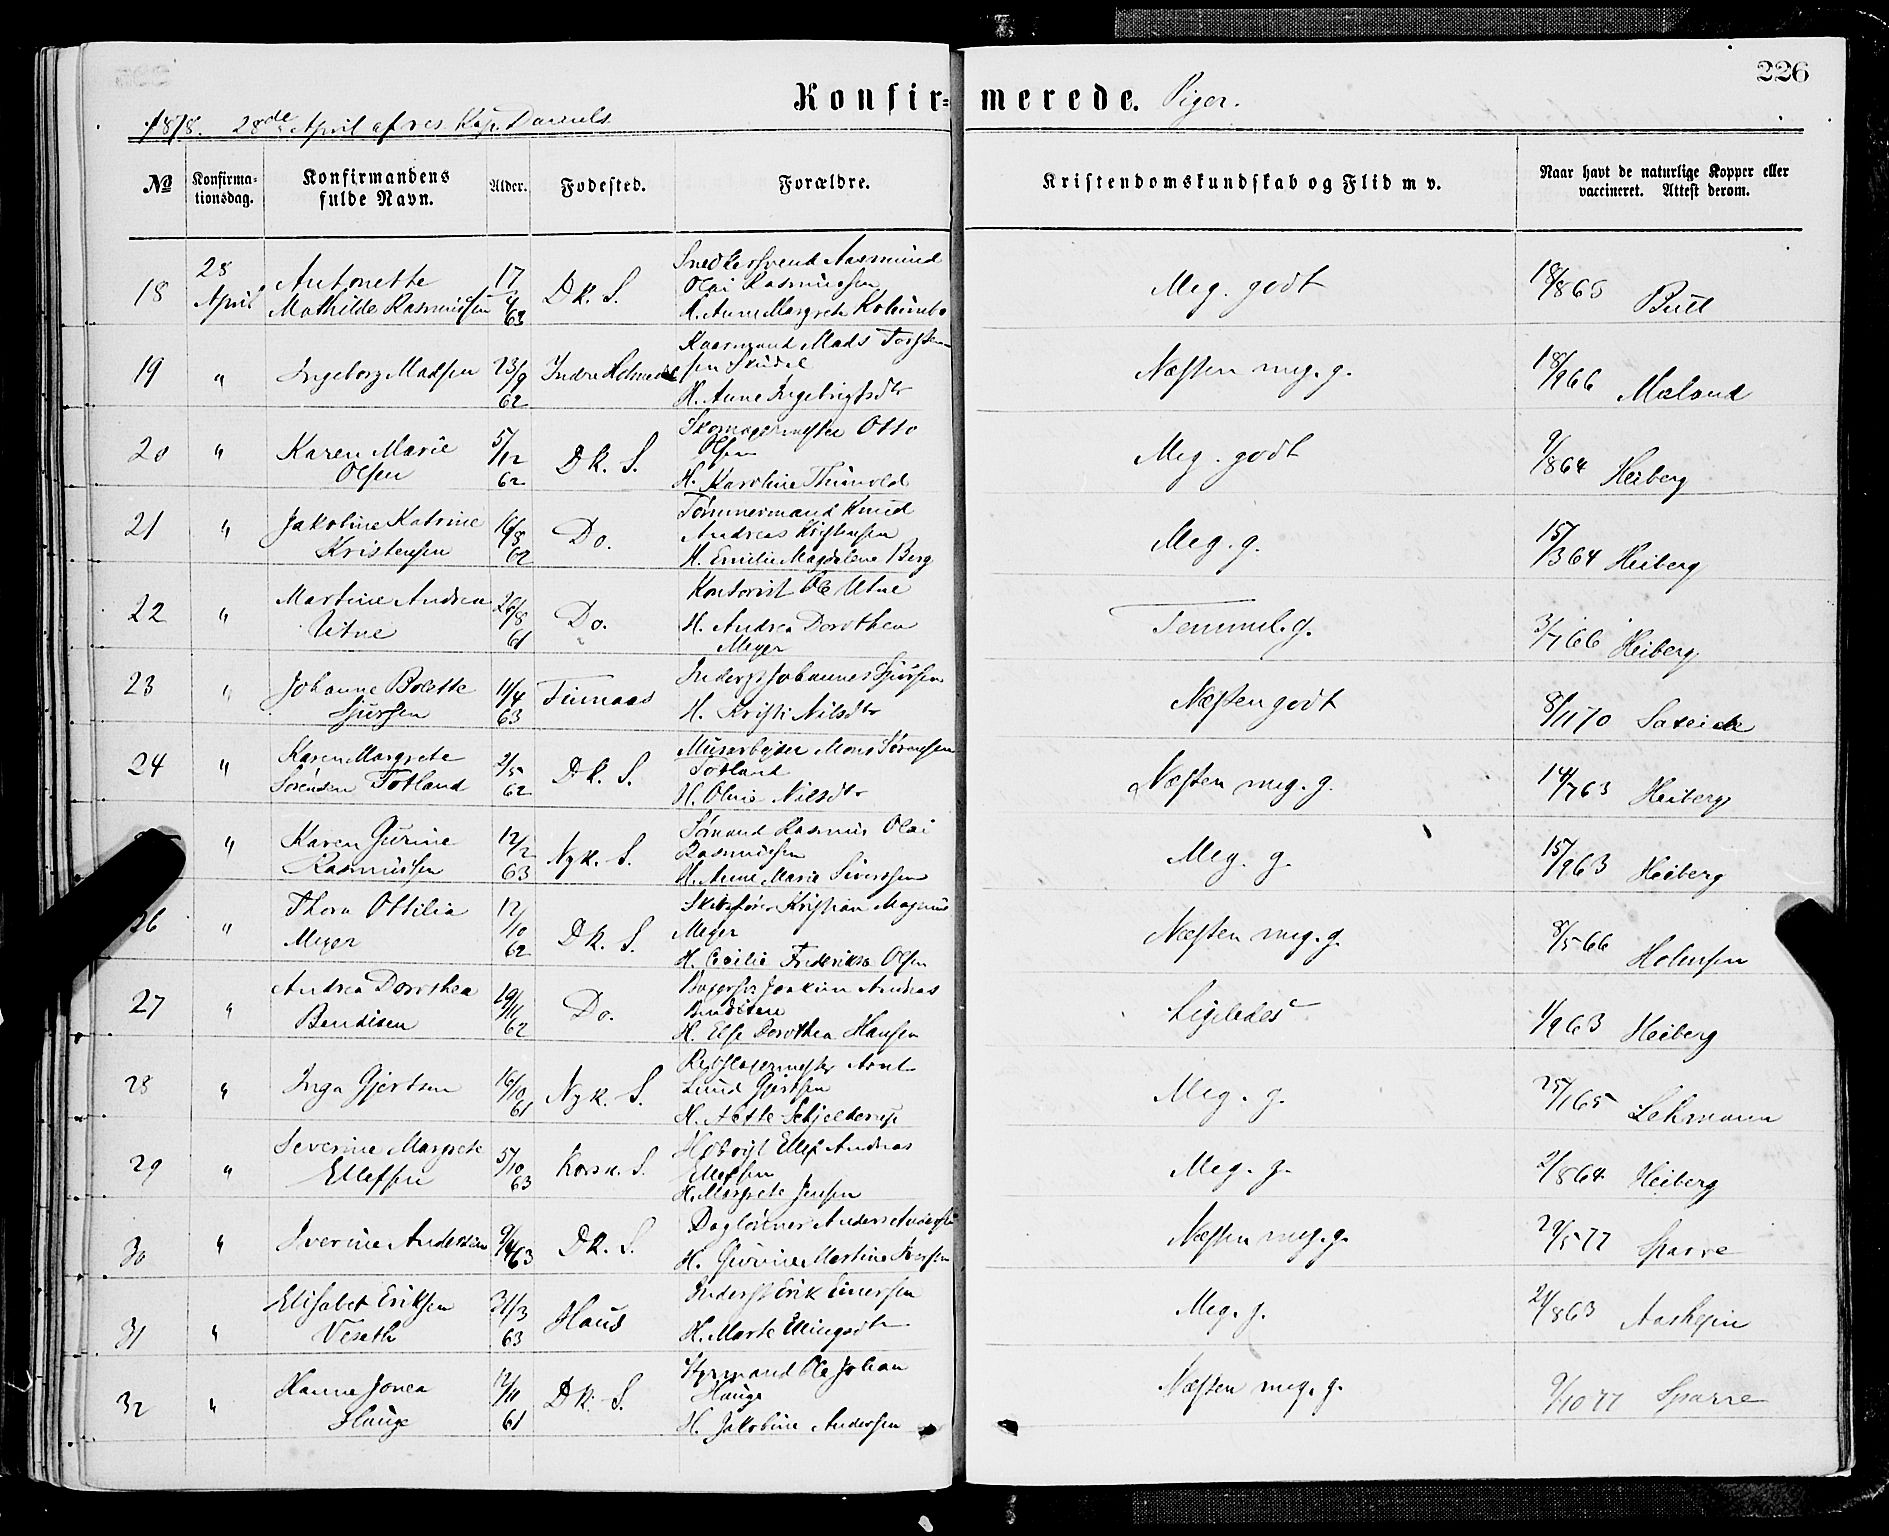 226
Konfirmerede. Piger.
1878. 28de April af res. Kap. Daniels
№ Konfirma-tionsdag. Konfirmandens fulde Navn. Alder. Fødested. Forældre. Kristendomskundskab og Flid m v. Naar havt de naturlige Kopper eller vaccineret. Attest derom.
18 28 April Antonette Mathilde Rasmussen 17/4 63 Dk. S. Snedkersvend Rasmus Olai Rasmussen H. Anne Margrete Meg. godt 18/8 65 Bull
19 " Ingeborg Madsen 23/9 62 Indre Holmedal Mads Torstensen H. Anne Ingebrigtsdtr Næsten meg. g. 18/9 66 Maland
20 " Karen Marie Olsen 5/12 62 Dk. S. Skomagermester Otto Olsen H. Karoline Thunold Meg. godt 9/8 64 Heiberg
21 " Jakobine Katrine Kristensen 16/8 62 Do. Tømmermand Knud Andreas Kristensen H. Emilie Magdalene Berg Meg. g. 15/3 64 Heiberg
22 " Martine Andrea Utne 26/8 61 Do. Kontorist Ole Utne H. Andrea Dorothea Meyer Temmel. g. 3/7 66 Heiberg
23 " Johanne Bolette Sjursen 11/4 63 Finnaas Inderst Johannes Sjursen H. Kristi Nilsdtr Næsten godt 8/11 70
24 " Karen Margrete Sørensen Totland 2/5 62 Dk. S. Murarbeider Mons Sørensen Totland H. Oline Nilsdtr Næsten meg. g. 14/7 63 Heiberg
" Karen Gurine Rasmussen 12/2 63 Nyk. S. Sømand Rasmus Olai Rasmussen H. Anne Marie Sivertsen Meg. g. 15/9 63 Heiberg
26 " Thora Ottilia Meyer 12/10 62 Dk. S. Skibsfører Kristian Magnus Meyer H. Cecilie Frederikke Olsen Næsten meg. g. 8/5 66 Holmsen
27 " Andrea Dorothea Bendixen 19/11 62 Do. Joakim Andreas Bendixen H. Else Dorothea Hansen Ligeledes 1/9 63 Heiberg
28 " Inga Gjertsen 16/10 61 Nyk. S. Rebslagermester Arnt Lund Gjertsen H. Nette Schjelderup Meg. g. 25/1 65 Lehmann
29 " Severine Margrete Ellefsen 5/10 63 Korsk. S. Ellef Andreas Ellefsen H. Margrete Jensen Meg. g. 2/8 64 Heiberg
30 " Iverine Andersen 9/4 63 Dk. S. Daglønner Anders Andersen H. Gurine Martine Iversen Næsten meg. g. 29/5 77 Sparre
31 " Elisabet Eriksen Veseth 31/3 63 Haus Inderst Erik Einersen H. Marte Ellingsdtr Meg. g. 21/8 63
32 " Hanne Jonea Hauge 12/11 61 Dk. S. Styrmand Ole Johan Hauge H. Jakobine Andersen Næsten meg. g. 9/10 77 Sparre